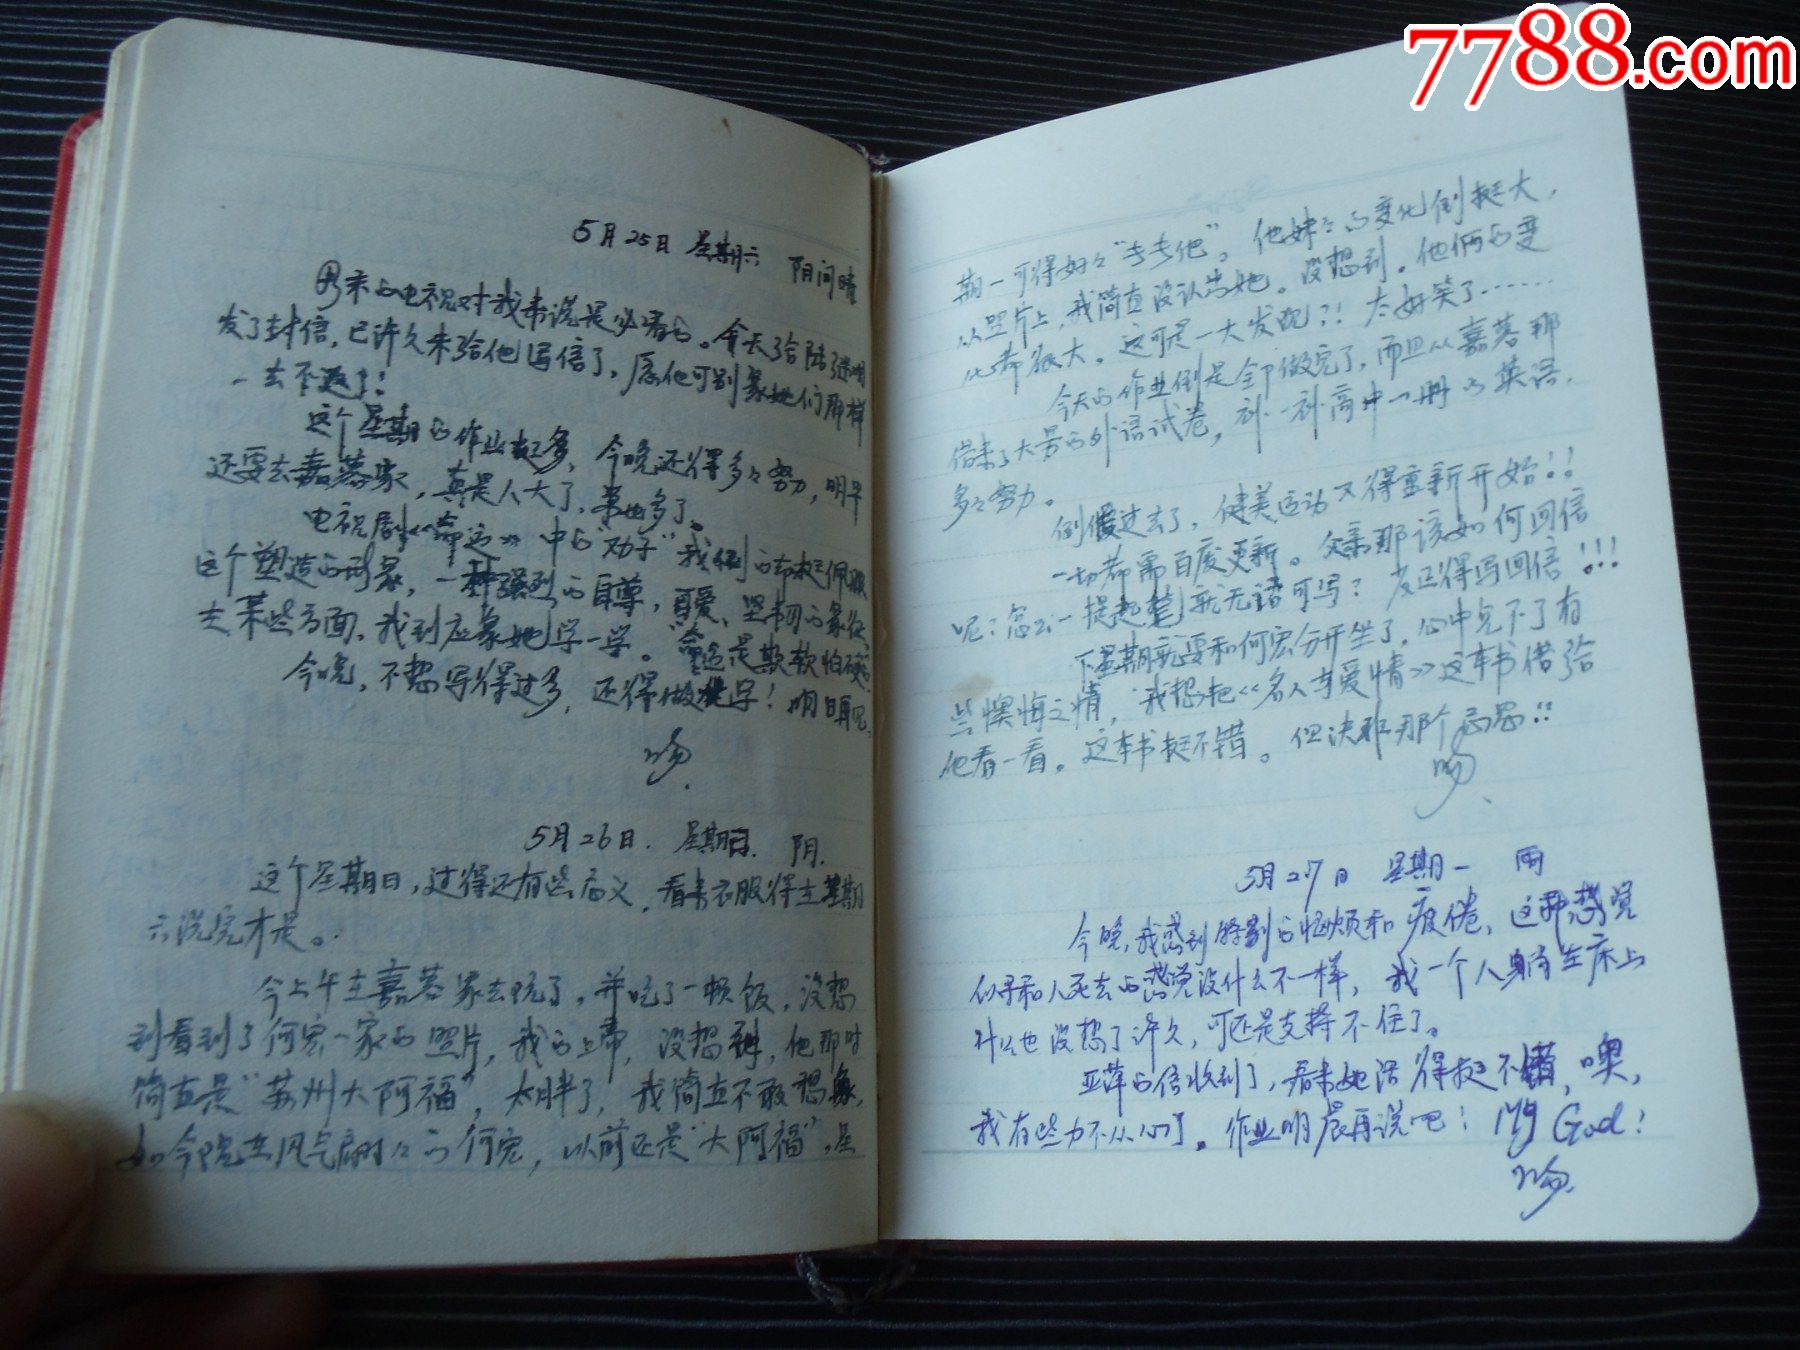 7788.com
5月25日 星期六 阴间晴
来的电视对我来说是必看的。今天给陆
发了封信,已许久未给他写信了,愿他可别象她们那样
一去不返了!
这个星期的作业挺多,今晚还得多多努力,明早
还要去嘉蓉家,真是人大了,事也多了。
电视剧《命运》中的"劝子"我倒的布挺佩服
这个塑造的形象,一种强烈的自尊,可爱、坚韧的象征,
在某些方面,我到应象她学一学。"命运是欺软怕硬"。
今晚,不想写得过多,还得做,明日再见,
5月26日. 星期日. 阴.
这个星期日,过得还有些意义,看来衣服得在星期
六洗完才是。
今上午在嘉蓉家去玩了,并吃了一顿饭,没想
到看到了何宏一家的照片,我的上帝,没想到,他那时
简直是"苏州大阿福",太胖了,我简直不敢想象,
如今风气的何宏,以前还是"大阿福",星
期一可得好好"夸夸他"。他妹妹的变化倒挺大,
从照片上,我简直没认出她。没想到,他俩的变
化都很大。这可是一大发现?!太好笑了……
今天的作业倒是全部做完了,而且从嘉蓉那
借来了大量的外语试卷,补一补高中一册的英语,
多多努力。
假过去了,健美运动又得重新开始!!
一切都需百废更新。父亲那该如何回信
呢?怎么一提起笔就无话可写?发还得写回信!!!
下星期就要和何宏分开坐了,心中免不了有
些懊悔之情,我想把《名人与爱情》这本书借给
他看一看。这本书挺不错。但决非那个意思!!
5月27日 星期一 雨
今晚,我感到特别的恼烦和疲倦,这种感觉
似乎和人死去的感觉没什么不一样,我一个人躺在床上
什么也没想了许久,可还是支持不住了。
亚萍的信收到了,看来她活得挺不错,噢,
我有些力不从心了。作业明晨再说吧!My God!